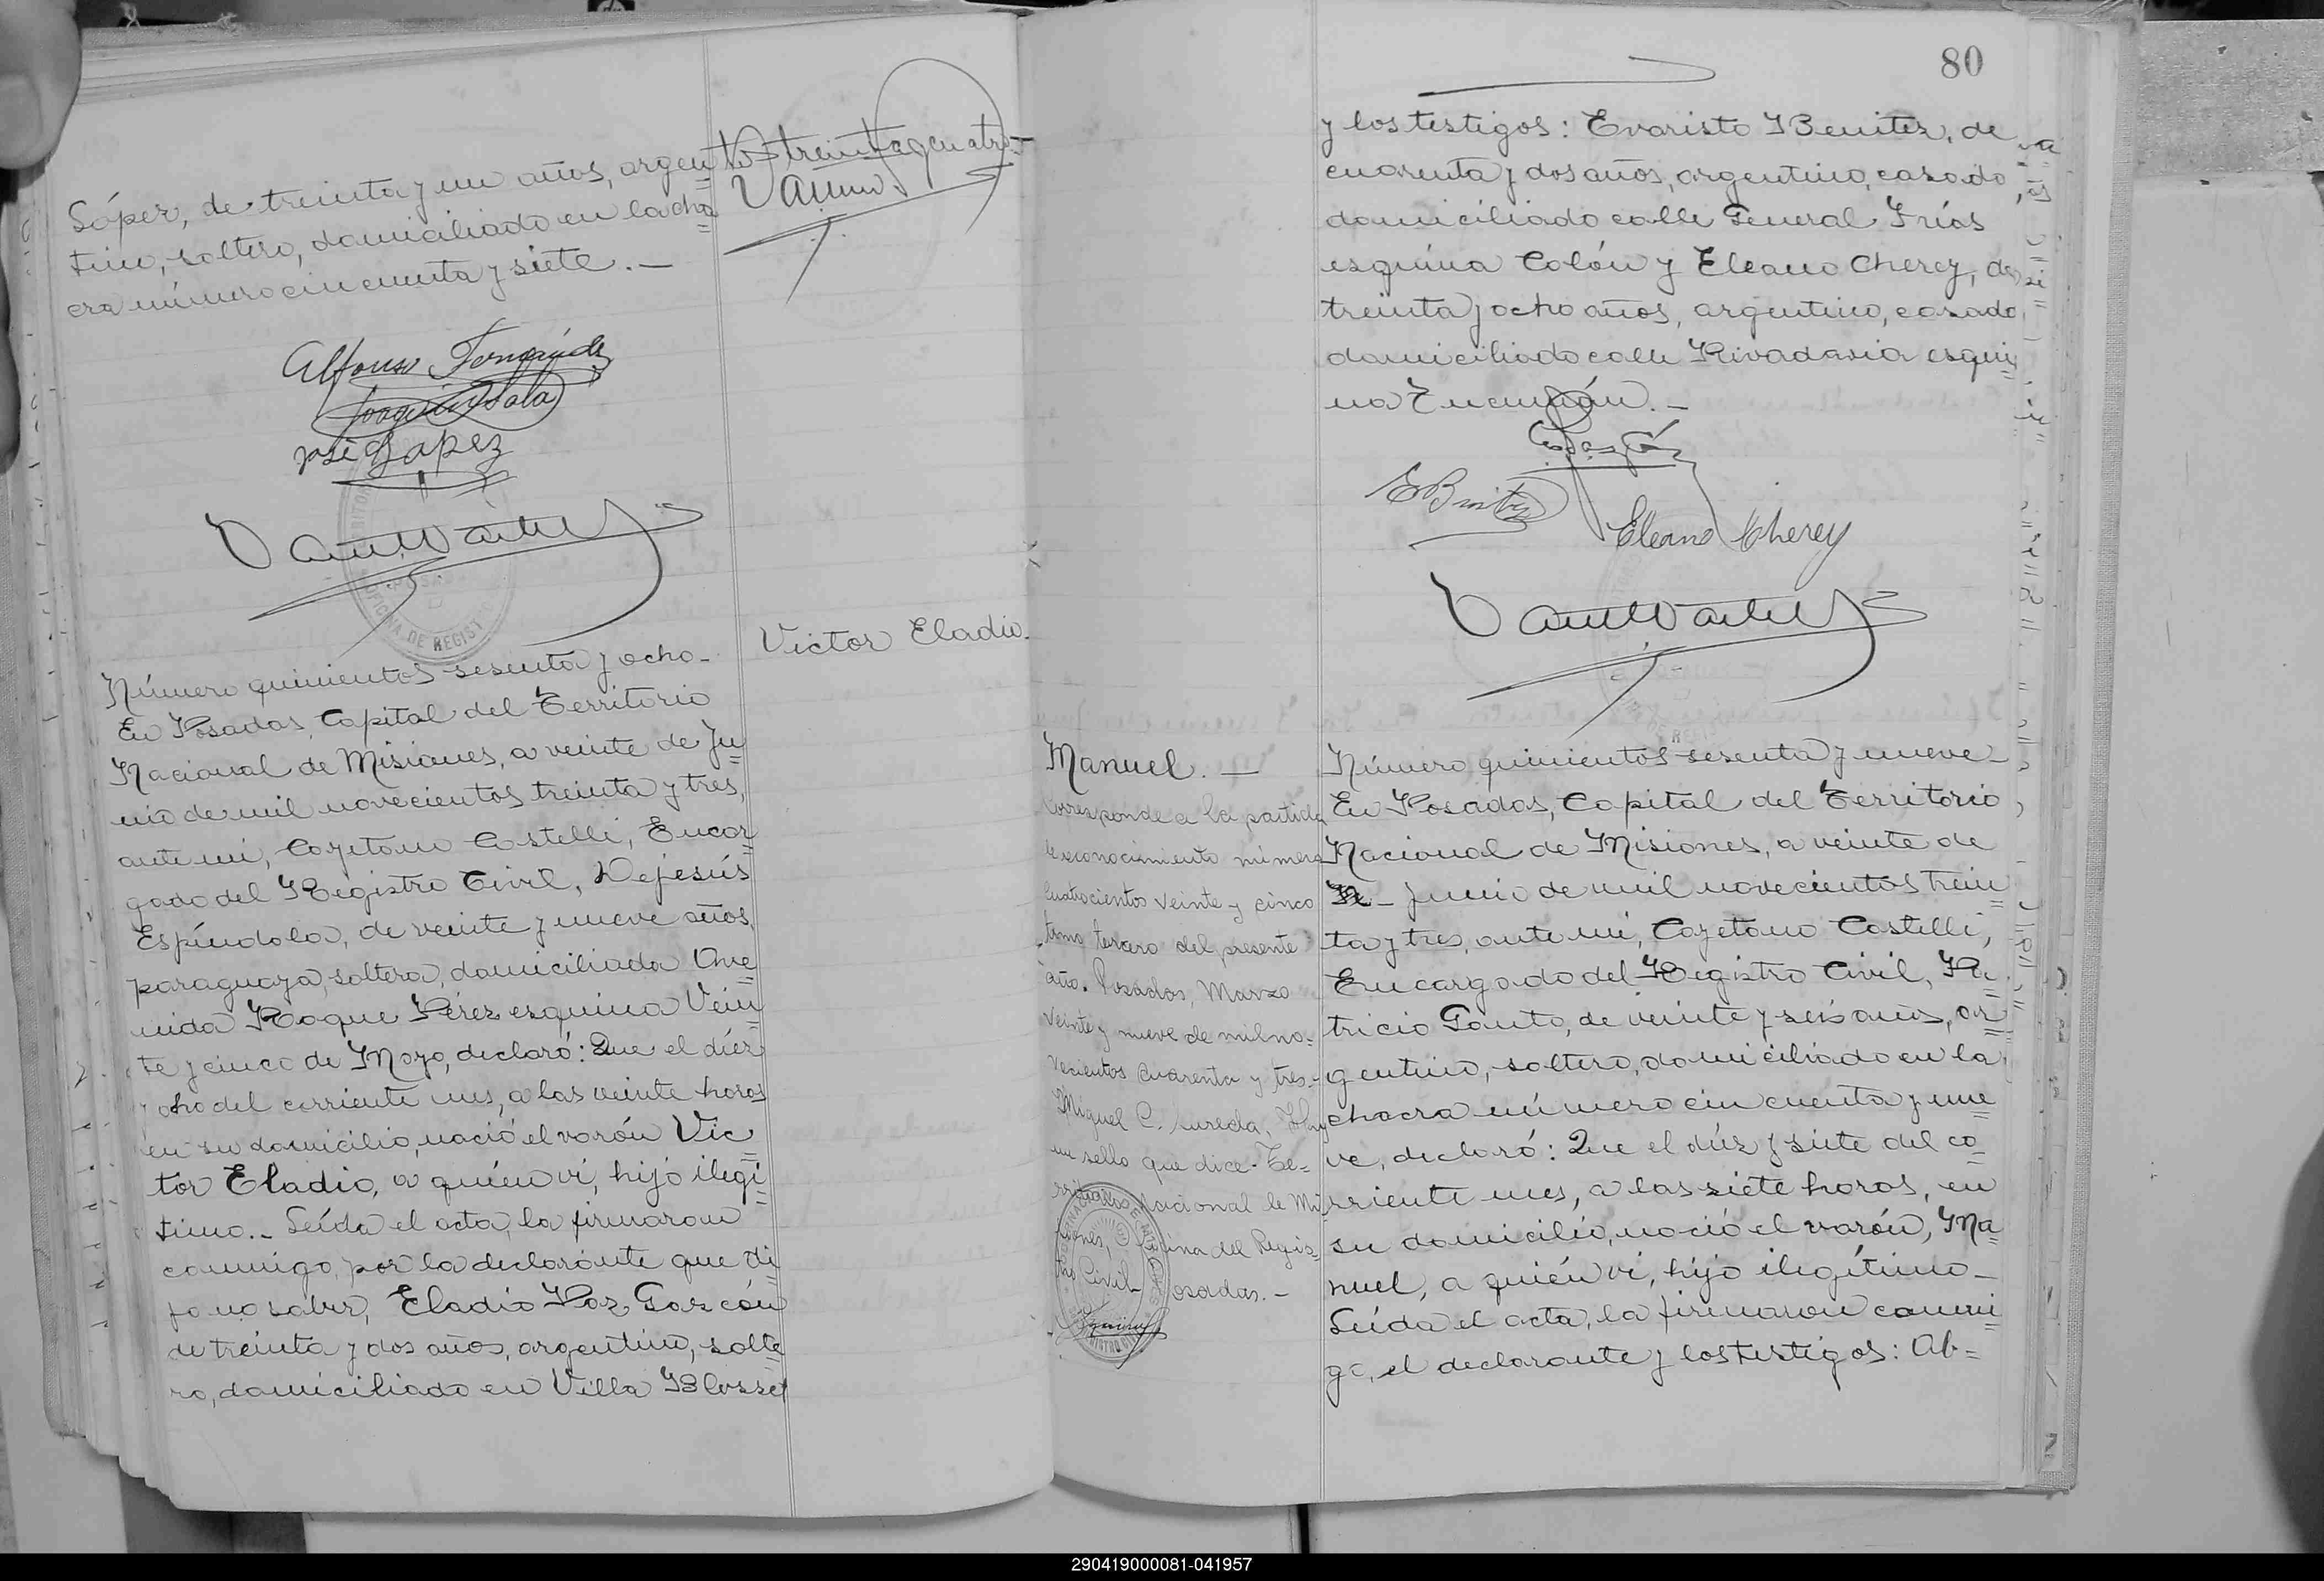 López, de treinta y un años, argen=
tino, soltero, domiciliado en la cha
cra número cincuenta y siete.—
treinta y cuatro—
Alfonso Fernández
Joaquín Sala
José Lopez
OFICINA DE REGIST
Número quinientos sesenta y ocho—
Victor Eladio—
En Posadas, Capital del Territorio
Nacional de Misiones, a veinte de Ju=
nio de mil novecientos treinta y tres,
ante mi, Cayetano Castelli, Encar=
gado del Registro Civil, Dejesús
Espíndola, de veinte y nueve años,
paraguaya, soltera, domiciliada Ave=
nida Roque Pérez esquina Vein=
te y cinco de Mayo, declaró: Que el diez
y ocho del corriente mes, a las veinte horas
en su domicilio, nació el varón Vic=
tor Eladio, a quién vi, hijo ilegí=
timo.— Leída el acta, la firmaron
conmigo, por la declarante que di=
jo no saber, Eladio Paz Garzón
de treinta y dos años, argentino, solte=
ro, domiciliado en Villa Blosset
80
y los testigos: Evaristo Benitez, de
cuarenta y dos años, argentino, casado,
domiciliado calle General Frías
esquina Colón y Eleano Cherey, de
treinta y ocho años, argentino, casado,
domiciliado calle Rivadavia esqui=
na Tucumán.—
E Benitez
Eleano Cherey
Manuel.—
Corresponde a la partida
de reconocimiento número
cuatrocientos veinte y cinco
tomo tercero del presente
año. Posadas, Marzo
veinte y nueve de mil no=
vecientos cuarenta y tres.—
Miguel C. Lureda. Hay
un sello que dice: Te=
rritorio Nacional de Mi
siones, Oficina del Regis=
tro Civil Posadas.—
Número quinientos sesenta y nueve—
En Posadas, Capital del Territorio
Nacional de Misiones, a veinte de
— Junio de mil novecientos trein=
ta y tres, ante mi, Cayetano Castelli,
Encargado del Registro Civil, Pa=
tricio Gauto, de veinte y seis años, ar=
gentino, soltero, domiciliado en la
chacra número cincuenta y nue=
ve, declaró: Que el diez y siete del co=
rriente mes, a las siete horas, en
su domicilio, nació el varón, Ma=
nuel, a quién vi, hijo ilegítimo—
Leída el acta, la firmaron conmi=
go, el declarante y los testigos: Al=
290419000081-041957